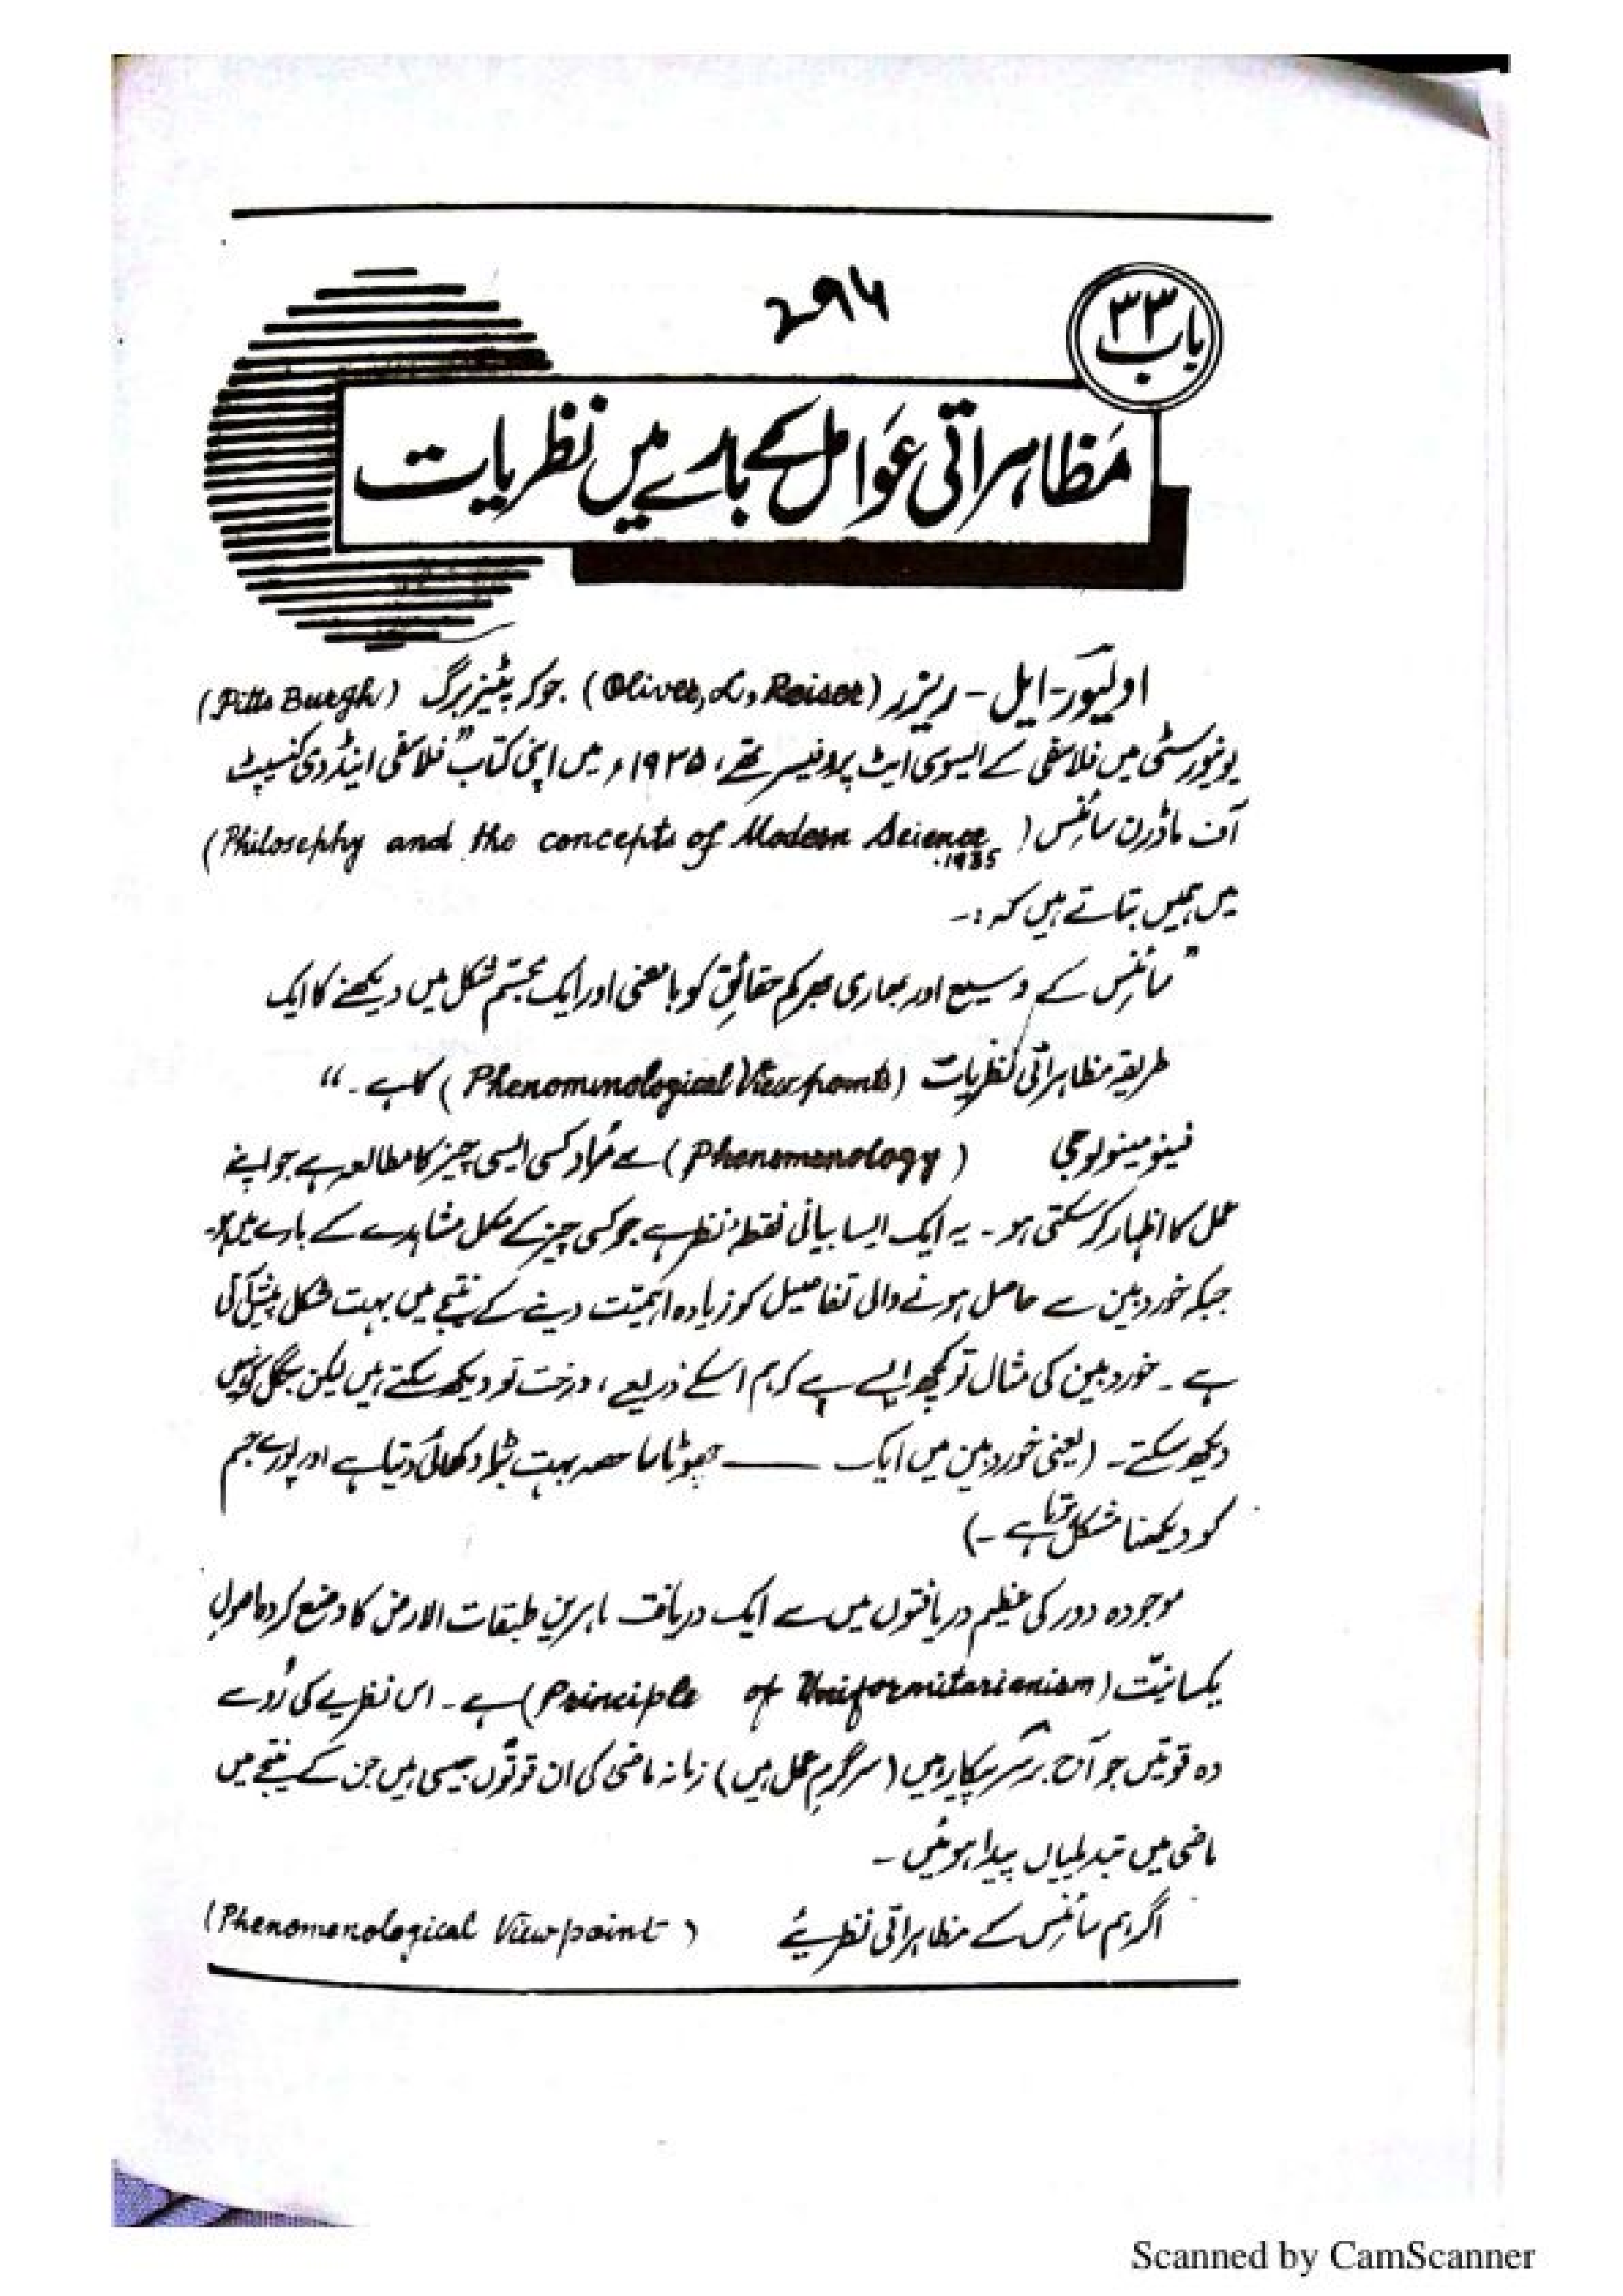 باب ۳۳
مظاہراتی عوامل کے بارے میں نظریات
اولیور-ایل-ریزر (Oliver, L, Reiser) جو کہ پٹیز برگ (Pitts Burgh)
یونیورسٹی میں فلاسفی کے ایسوسی ایٹ پروفیسر تھے، ۱۹۳۵ء میں اپنی کتاب "فلاسفی اینڈ دی کنسپٹ
آف ماڈرن سائنس (Philosophy and the concepts of Modern Science .1935)
میں ہمیں بتاتے ہیں کہ :-
"سائنس کے وسیع اور بھاری بھرکم حقائق کو بامعنی اور ایک مجسّم شکل میں دیکھنے کا ایک
طریقہ مظاہراتی نظریات (Phenominological Viewpoints) کا ہے۔"
فینومینولوجی (Phenomenology) سے مُراد کسی ایسی چیز کا مطالعہ ہے جو اپنے
عمل کا اظہار کر سکتی ہو۔ یہ ایک ایسا بیانی نقطۂ نظر ہے جو کسی چیز کے مکمل مشاہدے کے بارے میں ہو۔
جبکہ خوردبین سے حاصل ہونے والی تفاصیل کو زیادہ اہمیّت دینے کے نتیجے میں بہت مشکل پیش آتی
ہے۔ خوردبین کی مثال تو کچھ ایسے ہے کہ ہم اسکے ذریعے، درخت تو دیکھ سکتے ہیں لیکن جنگل کو نہیں
دیکھ سکتے۔ (یعنی خوردبین میں ایک ـــــ چھوٹا سا حصہ بہت بڑا دکھائی دیتا ہے اور پورے جسم
کو دیکھنا مشکل ہوتا ہے۔)
موجودہ دور کی عظیم دریافتوں میں سے ایک دریافت ماہرینِ طبقات الارض کا وضع کردہ اصولِ
یکسانیّت (Principle of Uniformitarianism) ہے۔ اس نظریے کی رُو سے
وہ قوتیں جو آج برسرِپیکار ہیں (سرگرمِ عمل ہیں) زمانہ ماضی کی ان قوتوں جیسی ہیں جن کے نتیجے میں
ماضی میں تبدیلیاں پیدا ہوئیں۔
اگر ہم سائنس کے مظاہراتی نظریئے (Phenomenological Viewpoint)
Scanned by CamScanner